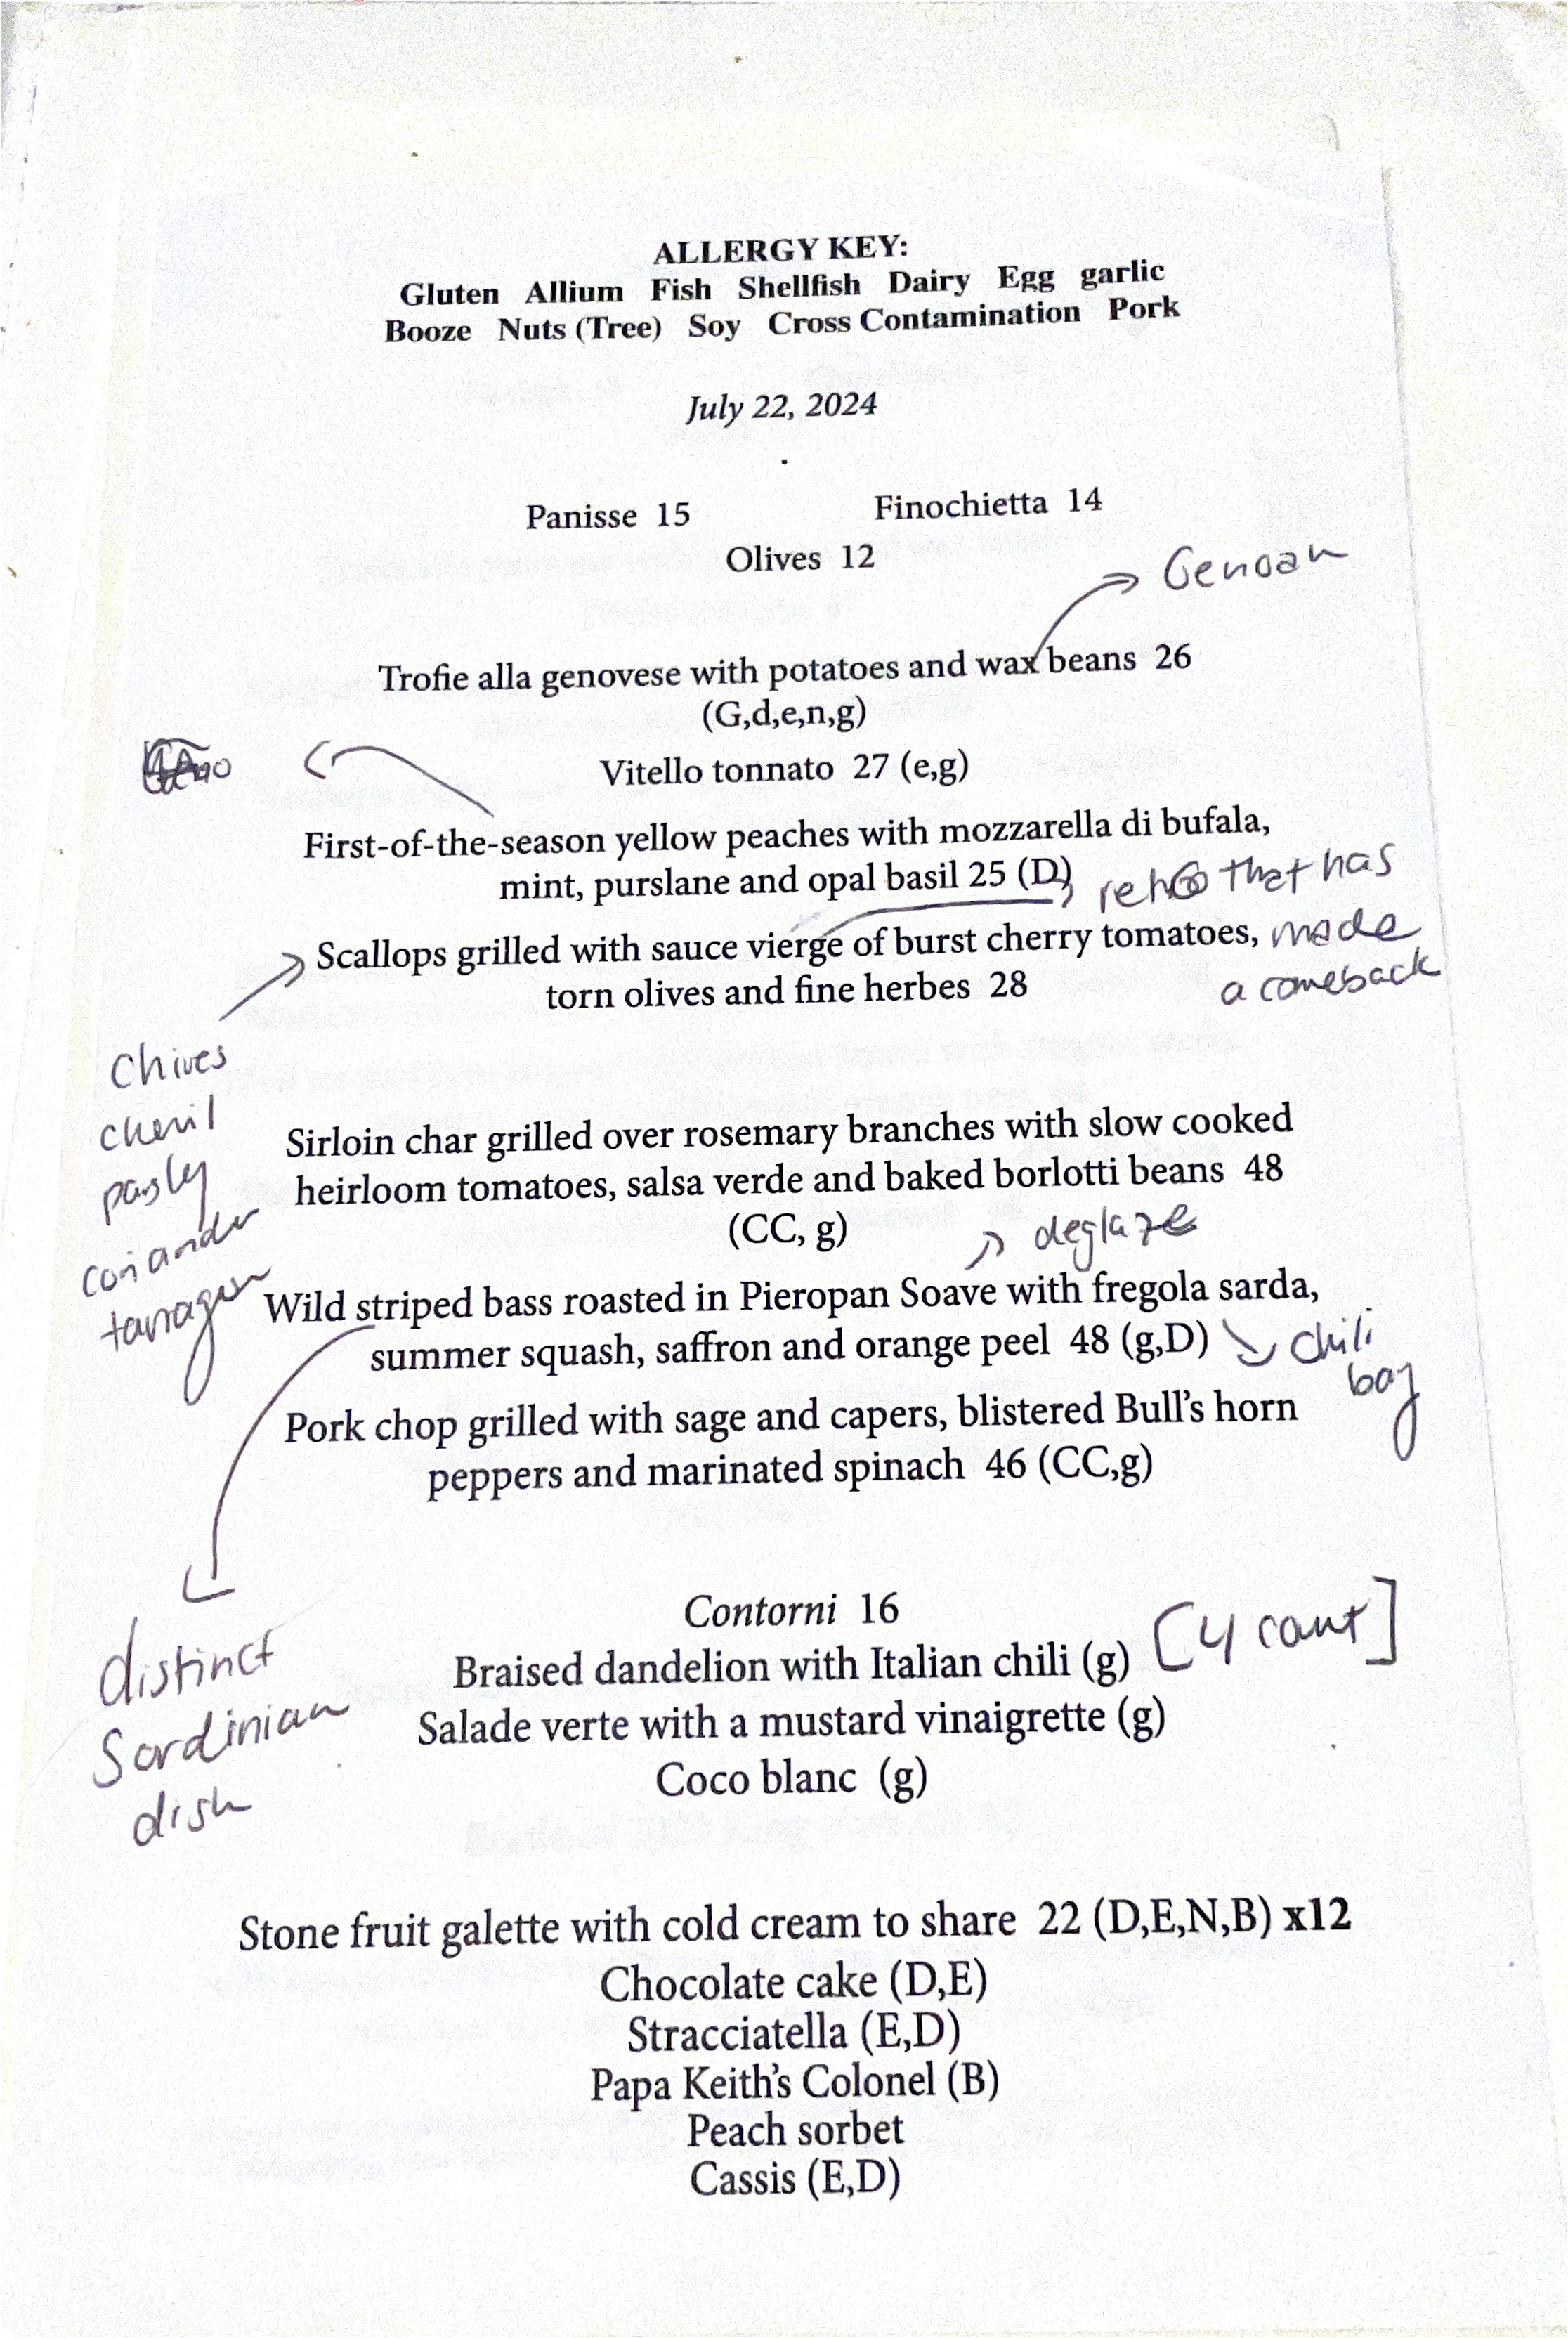 ALLERGY KEY:
Gluten Allium Fish Shellfish Dairy Egg garlic
Booze Nuts (Tree) Soy Cross Contamination Pork
July 22, 2024
Panisse 15
Finochietta 14
Olives 12
Genoan
Trofie alla genovese with potatoes and wax beans 26
(G,d,e,n,g)
Vitello tonnato 27 (e,g)
First-of-the-season yellow peaches with mozzarella di bufala,
mint, purslane and opal basil 25 (D)
retro that has
made
a comeback
Scallops grilled with sauce vierge of burst cherry tomatoes,
torn olives and fine herbes 28
Chives
chervil
parsley
coriander
tarragon
Sirloin char grilled over rosemary branches with slow cooked
heirloom tomatoes, salsa verde and baked borlotti beans 48
(CC, g)
deglaze
Wild striped bass roasted in Pieropan Soave with fregola sarda,
summer squash, saffron and orange peel 48 (g,D)
chili
bay
Pork chop grilled with sage and capers, blistered Bull's horn
peppers and marinated spinach 46 (CC,g)
distinct
Sardinian
dish
Contorni 16
Braised dandelion with Italian chili (g)
[4 count]
Salade verte with a mustard vinaigrette (g)
Coco blanc (g)
Stone fruit galette with cold cream to share 22 (D,E,N,B) x12
Chocolate cake (D,E)
Stracciatella (E,D)
Papa Keith's Colonel (B)
Peach sorbet
Cassis (E,D)